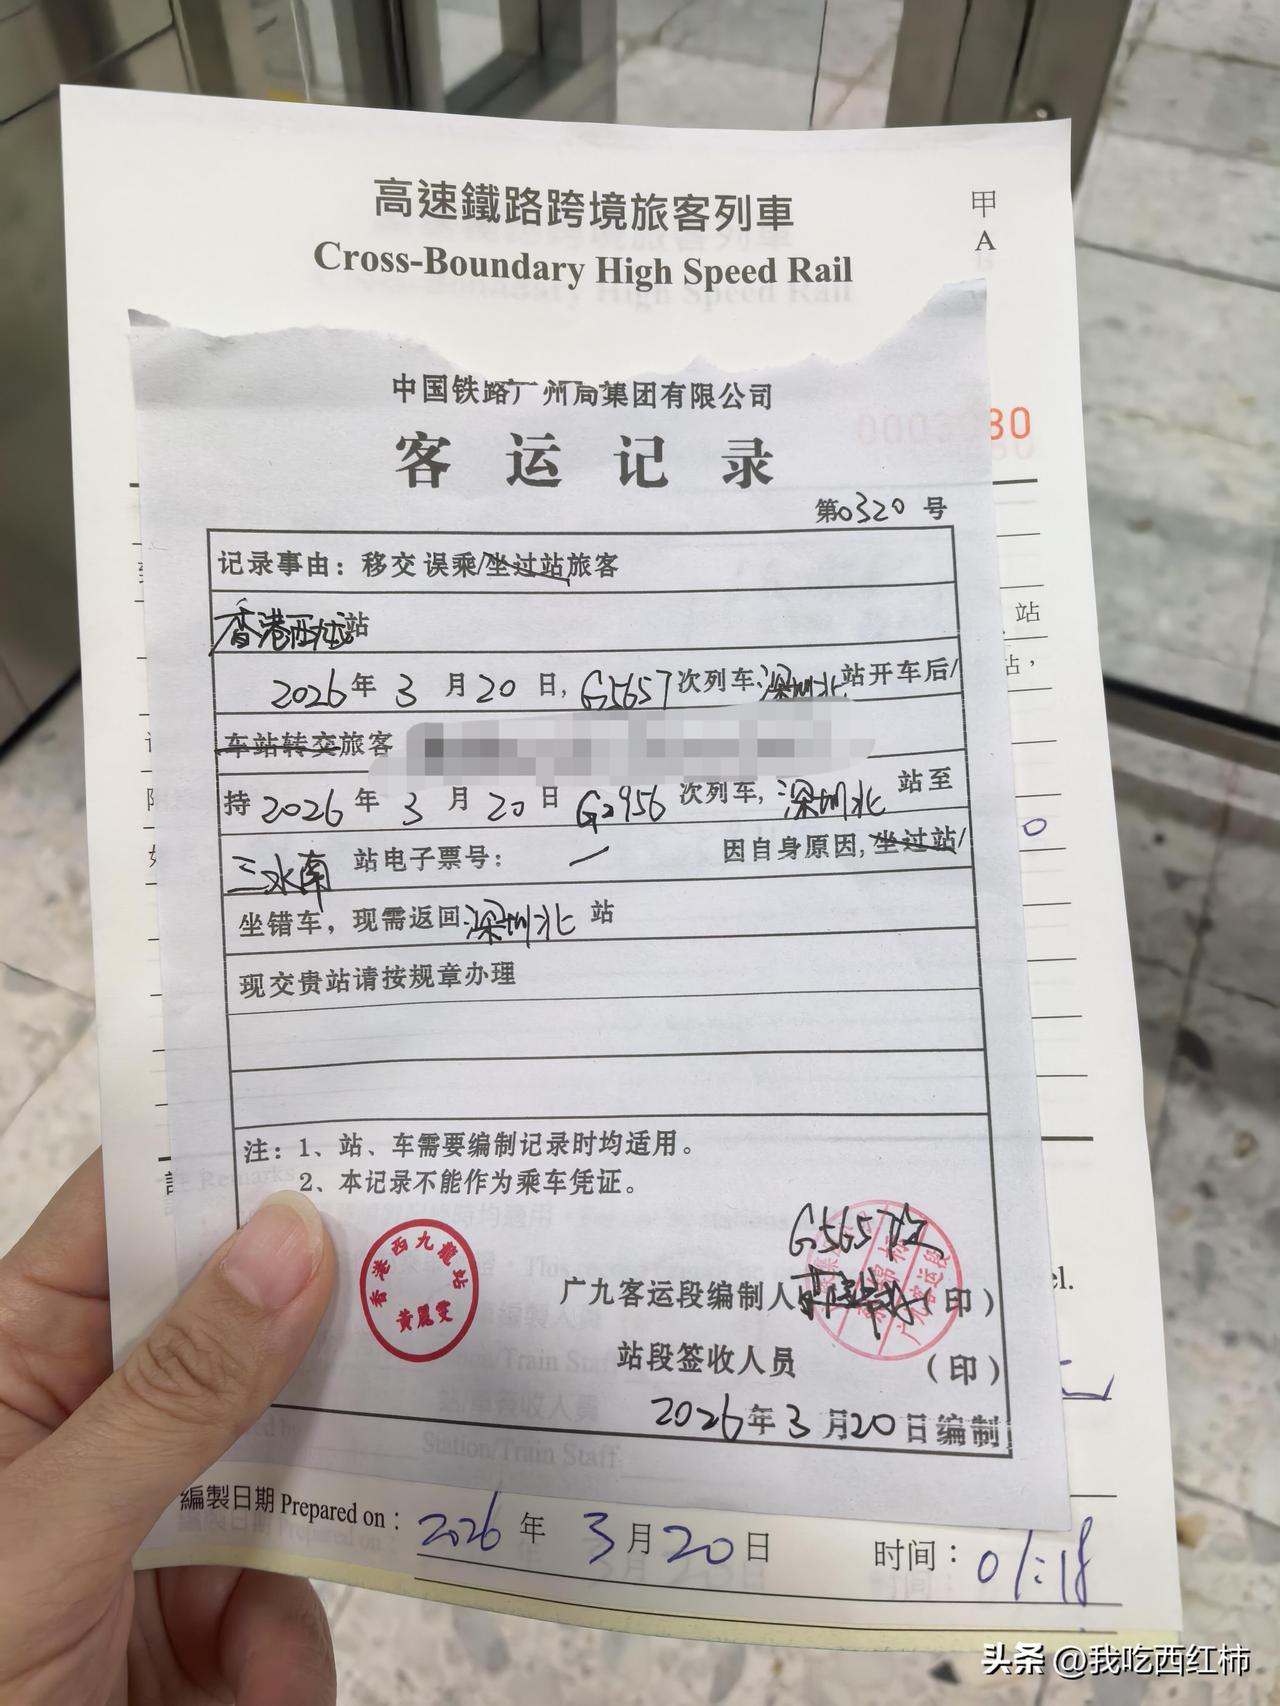 高速鐵路跨境旅客列車
甲
Cross-Boundary High Speed Rail
A
中国铁路广州局集团有限公司
客运记录
第0320号
记录事由：移交误乘/坐过站旅客
香港西九龙站
站
2026年3月20日，G5657次列车，深圳北站开车后/
站，
车站转交旅客
持2026年3月20日G2956次列车，深圳北站至
三水南站电子票号：一 因自身原因，坐过站/
坐错车，现需返回深圳北站
现交贵站请按规章办理
注：1、站、车需要编制记录时均适用。
2、本记录不能作为乘车凭证。
G5657
香港西九龍站
黃麗雯
广九客运段编制人（印）
站段签收人员（印）
2026年3月20日编制
Station/Train Staff
編製日期 Prepared on：2026年3月20日 时间：01:18
头条 @我吃西红柿